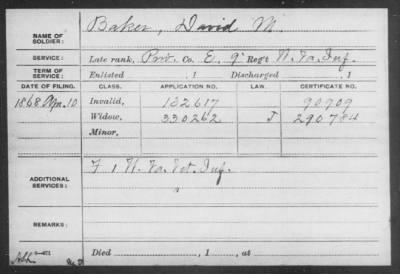 NAME OF SOLDIER: Baker, David M.
SERVICE: Late rank, Prvt. Co. E, 9" Reg't W. Va. Inf.
TERM OF SERVICE: Enlisted , 1 Discharged , 1
DATE OF FILING. CLASS. APPLICATION NO. LAW. CERTIFICATE NO.
1868 Apr. 10 Invalid, 132617 90909
Widow, 330262 J 290784
Minor,
ADDITIONAL SERVICES: F 1 W. Va. Vet. Inf.
REMARKS:
Died , 1 , at